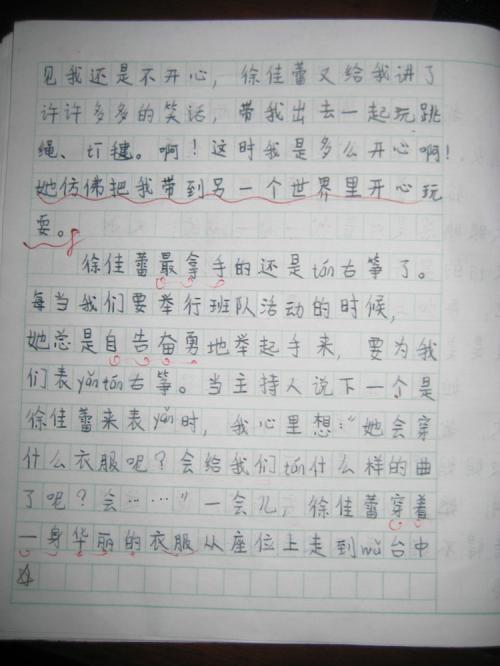 见我还是不开心，徐佳蕾又给我讲了
许许多多的笑话，带我出去一起玩跳
绳、tī毽。啊！这时我是多么开心啊！
她仿佛把我带到另一个世界里开心玩
耍。
徐佳蕾最拿手的还是tán古筝了。
每当我们要举行班队活动的时候，
她总是自告奋勇地举起手来，要为我
们表yǎntán古筝。当主持人说下一个是
徐佳蕾来表yǎn时，我心里想：“她会穿
什么衣服呢？会给我们tán什么样的曲
了呢？会……”一会儿，徐佳蕾穿着
一身华丽的衣服从座位上走到wǔ台中